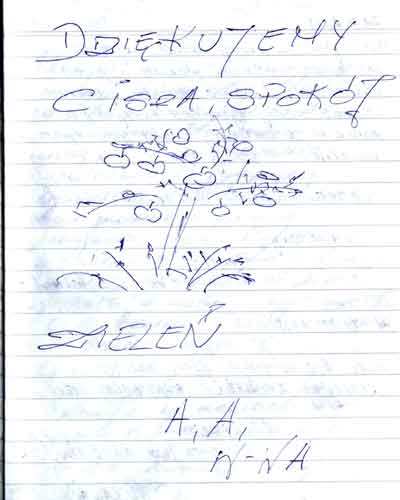 DZIĘKUJEMY
CISZA, SPOKÓJ
ZIELEŃ
A, A,
W-NA